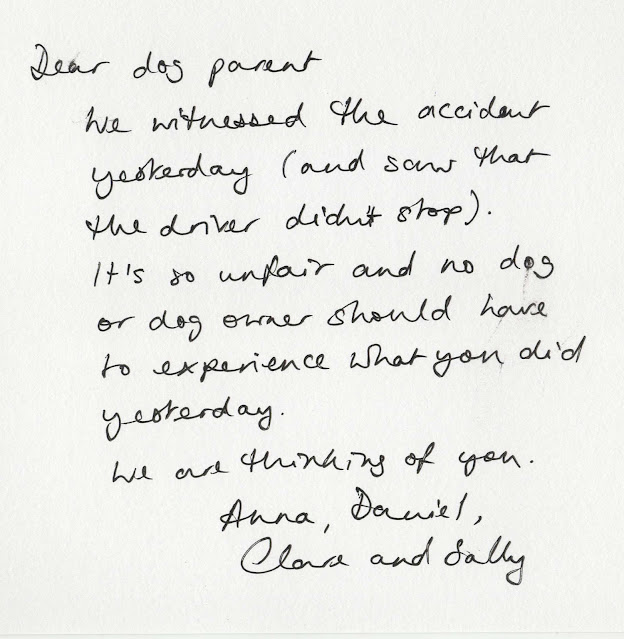 Dear dog parent
We witnessed the accident
yesterday (and saw that
the driver didn't stop).
It's so unfair and no dog
or dog owner should have
to experience what you did
yesterday.
We are thinking of you.
Anna, Daniel,
Clare and Sally